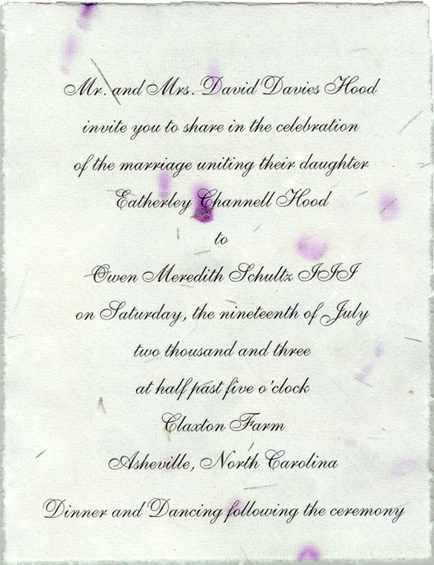 Mr. and Mrs. David Davies Hood
invite you to share in the celebration
of the marriage uniting their daughter
Eatherley Channell Hood
to
Owen Meredith Schultz III
on Saturday, the nineteenth of July
two thousand and three
at half past five o'clock
Claxton Farm
Asheville, North Carolina
Dinner and Dancing following the ceremony